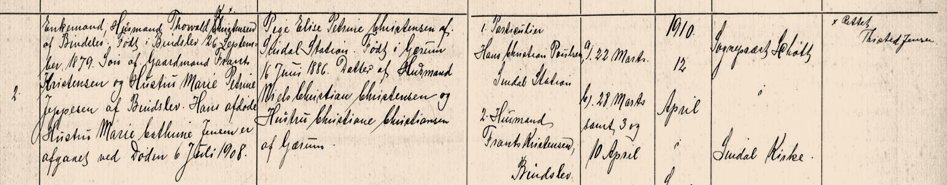 2
Enkemand, Husmand Thorvald Christensen
af Bindslev. Født i Bindslev 26 Septem-
ber 1879. Søn af Gaardmand Frants
Kristensen og Hustru Marie Petrine
Jeppesen af Bindslev. Hans afdøde
Hustru Marie Cathrine Jensen er
afgaaet ved Døden 6 Juli 1908.
Pige Elise Petrine Christensen af
Sindal Station. Født i Gærum
16 Juni 1886. Datter af Husmand
Niels Christian Christensen og
Hustru Christiane Christiansen
af Gærum.
1. Particulier
Hans Christian Poulsen
Sindal Station
2. Husmand
Frants Kristensen,
Bindslev.
a). 22 Marts
b). 28 Marts
samt 3 og
10 April
1910
12
April
Sognepræst Schøtt
Sindal Kirke.
x Attest
Thisted Jensen